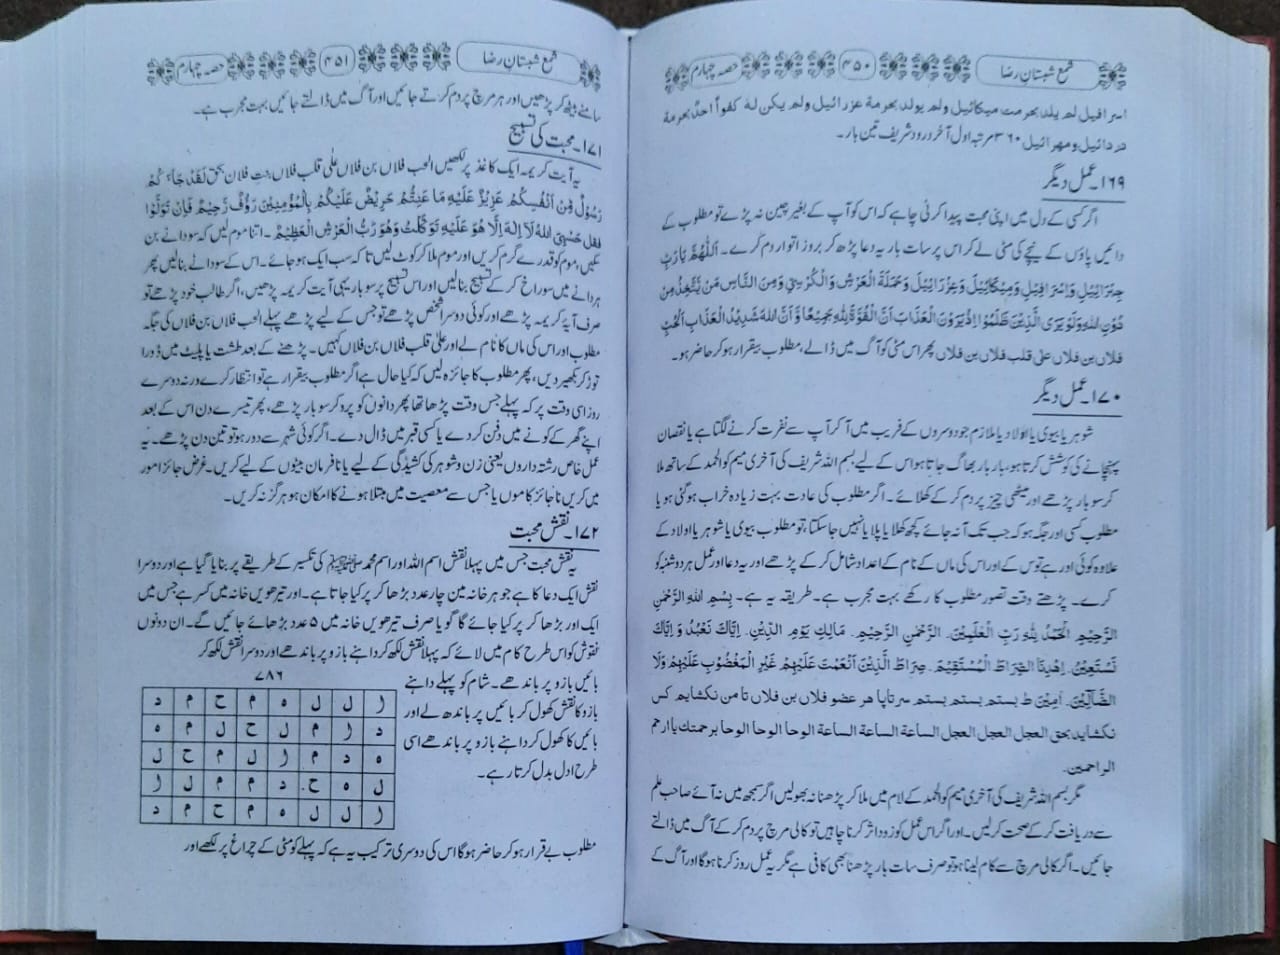 شمع شبستانِ رضا ۴۵۰ حصہ چہارم
اسرافیل لم یلد بحرمت میکائیل ولم یولد بحرمة عزرائیل ولم یکن له کفواً احدٌ بحرمة
دردائیل ومهرائیل ۳۶۰ مرتبہ اول آخر درود شریف تین بار۔
۱۶۹۔عمل دیگر
اگر کسی کے دل میں اپنی محبت پیدا کرنی چاہے کہ اس کو آپ کے بغیر چین نہ پڑے تو مطلوب کے
دائیں پاؤں کے نیچے کی مٹی لے کر اس پر سات بار یہ دعا پڑھ کر بروز اتوار دم کرے۔ اَللّٰهُمَّ یَا رَبِّ
جِبْرَائِیْلَ وَاِسْرَافِیْلَ وَمِیْکَائِیْلَ وَعِزْرَائِیْلَ وَحَمَلَةَ الْعَرْشِ وَالْکُرْسِیِّ وَمِنَ النَّاسِ مَنْ یَّتَّخِذُ مِنْ
دُوْنِ اللهِ وَلَوْ یَرَی الَّذِیْنَ ظَلَمُوْا اِذْ یَرَوْنَ الْعَذَابَ اَنَّ الْقُوَّةَ لِلّٰهِ جَمِیْعًا وَّ اَنَّ اللهَ شَدِیْدُ الْعَذَابِ اَلْحُبُّ
فلاں بن فلاں علی قلب فلاں بن فلاں پھر اس مٹی کو آگ میں ڈالے، مطلوب بیقرار ہو کر حاضر ہو۔
۱۷۰۔عمل دیگر
شوہر یا بیوی یا اولاد یا ملازم جو دوسروں کے فریب میں آ کر آپ سے نفرت کرنے لگتا ہے یا نقصان
پہنچانے کی کوشش کرتا ہو، بار بار بھاگ جاتا ہو اس کے لیے بسم اللہ شریف کی آخری میم کو الحمد کے ساتھ ملا
کر سو بار پڑھے اور میٹھی چیز پر دم کر کے کھلائے۔ اگر مطلوب کی عادت بہت زیادہ خراب ہو گئی ہو یا
مطلوب کسی اور جگہ ہو کہ جب تک آ نہ جائے کچھ کھلایا پلایا نہیں جا سکتا، تو مطلوب بیوی یا شوہر یا اولاد کے
علاوہ کوئی اور ہے تو اس کے اور اس کی ماں کے نام کے اعداد شامل کر کے پڑھے اور یہ دعا اور عمل ہر دوشنبہ کو
کرے۔ پڑھتے وقت تصور مطلوب کا رکھے بہت مجرب ہے۔ طریقہ یہ ہے۔ بِسْمِ اللهِ الرَّحْمٰنِ
الرَّحِیْمِ الْحَمْدُ لِلّٰهِ رَبِّ الْعٰلَمِیْنَ۔ الرَّحْمٰنِ الرَّحِیْمِ۔ مَالِكِ یَوْمِ الدِّیْنِ۔ اِیَّاكَ نَعْبُدُ وَ اِیَّاكَ
نَسْتَعِیْنُ۔ اِهْدِنَا الصِّرَاطَ الْمُسْتَقِیْمَ۔ صِرَاطَ الَّذِیْنَ اَنْعَمْتَ عَلَیْهِمْ غَیْرِ الْمَغْضُوْبِ عَلَیْهِمْ وَلَا
الضَّآلِّیْنَ۔ اٰمِیْنَ ط بستم بستم بستم سرتاپا هر عضو فلاں بن فلاں تا من نکشایم کس
نکشاید بحق العجل العجل العجل الساعة الساعة الساعة الوحا الوحا الوحا برحمتك یا ارحم
الراحمین۔
مگر بسم اللہ شریف کی آخری میم کو الحمد کے لام میں ملا کر پڑھنا نہ بھولیں اگر سمجھ میں نہ آئے صاحب علم
سے دریافت کر کے صحت کر لیں۔ اور اگر اس عمل کو زود اثر کرنا چاہیں تو کالی مرچ پر دم کر کے آگ میں ڈالتے
جائیں۔ اگر کالی مرچ سے کام لینا ہو تو صرف سات بار پڑھنا بھی کافی ہے مگر یہ عمل روز کرنا ہوگا اور آگ کے
شمع شبستانِ رضا ۴۵۱ حصہ چہارم
سامنے بیٹھ کر پڑھیں اور ہر مرچ پر دم کرتے جائیں اور آگ میں ڈالتے جائیں بہت مجرب ہے۔
۱۷۱۔محبت کی تسبیح
یہ آیت کریمہ۔ ایک کاغذ پر لکھیں الحب فلاں بن فلاں علٰی قلب فلاں بنت فلان بحق لَقَدْ جَآءَکُمْ
رَسُوْلٌ مِّنْ اَنْفُسِکُمْ عَزِیْزٌ عَلَیْهِ مَا عَنِتُّمْ حَرِیْصٌ عَلَیْکُمْ بِالْمُؤْمِنِیْنَ رَؤُفٌ رَّحِیْمٌ فَاِنْ تَوَلَّوْا
فَقُلْ حَسْبِیَ اللهُ لَآ اِلٰهَ اِلَّا هُوَ عَلَیْهِ تَوَکَّلْتُ وَهُوَ رَبُّ الْعَرْشِ الْعَظِیْمِ۔ اتنا موم لیں کہ سو دانے بن
سکیں، موم کو قدرے گرم کریں اور موم ملا کر کوٹ لیں تا کہ سب ایک ہو جائے۔ اس کے سو دانے بنالیں پھر
ہر دانے میں سوراخ کر کے تسبیح بنالیں اور اس تسبیح پر سو بار یہی آیت کریمہ پڑھیں، اگر طالب خود پڑھے تو
صرف آیۂ کریمہ پڑھے اور کوئی دوسرا شخص پڑھے تو جس کے لیے پڑھے پہلے الحب فلاں بن فلاں کی جگہ
مطلوب اور اس کی ماں کا نام لے اور علیٰ قلب فلاں بن فلاں کہیں۔ پڑھنے کے بعد طشت یا پلیٹ میں ڈورا
توڑ کر بکھیر دیں، پھر مطلوب کا جائزہ لیں کہ کیا حال ہے اگر مطلوب بیقرار ہے تو انتظار کرے ورنہ دوسرے
روز اسی وقت پر کہ پہلے جس وقت پڑھا تھا پھر دانوں کو پرو کر سو بار پڑھے، پھر تیسرے دن اس کے بعد
اپنے گھر کے کونے میں دفن کر دے یا کسی قبر میں ڈال دے۔ اگر کوئی شہر سے دور ہو تو تین دن پڑھے۔ یہ
عمل خاص رشتہ داروں یعنی زن و شوہر کی کشیدگی کے لیے یا نافرمان بیٹوں کے لیے کریں۔ غرض جائز امور
میں کریں ناجائز کاموں یا جس سے معصیت میں مبتلا ہونے کا امکان ہو ہرگز نہ کریں۔
۱۷۲۔نقش محبت
یہ نقش محبت جس میں پہلا نقش اسم اللہ اور اسم محمد ﷺ کی تکسیر کے طریقے پر بنایا گیا ہے اور دوسرا
نقش ایک دعا کا ہے جو ہر خانہ میں چار عدد بڑھا کر پر کیا جاتا ہے۔ اور تیرھویں خانہ میں کسر ہے جس میں
ایک اور بڑھا کر پر کیا جائے گا گویا صرف تیرھویں خانہ میں ۵ عدد بڑھائے جائیں گے۔ ان دونوں
نقوش کو اس طرح کام میں لائے کہ پہلا نقش لکھ کر داہنے بازو پر باندھے اور دوسرا نقش لکھ کر
بائیں بازو پر باندھے۔ شام کو پہلے داہنے
بازو کا نقش کھول کر بائیں پر باندھ لے اور
بائیں کا کھول کر داہنے بازو پر باندھے اسی
طرح ادل بدل کرتا رہے۔
۷۸۶
ا ل ل ہ م ح م د
د ا م ل ح ل م ہ
ہ د م ا ل م ح ل
ل ہ ح د م م ل ا
ا ل ل ہ م ح م د
مطلوب بے قرار ہو کر حاضر ہوگا اس کی دوسری ترکیب یہ ہے کہ پہلے کو مٹی کے چراغ پر لکھے اور